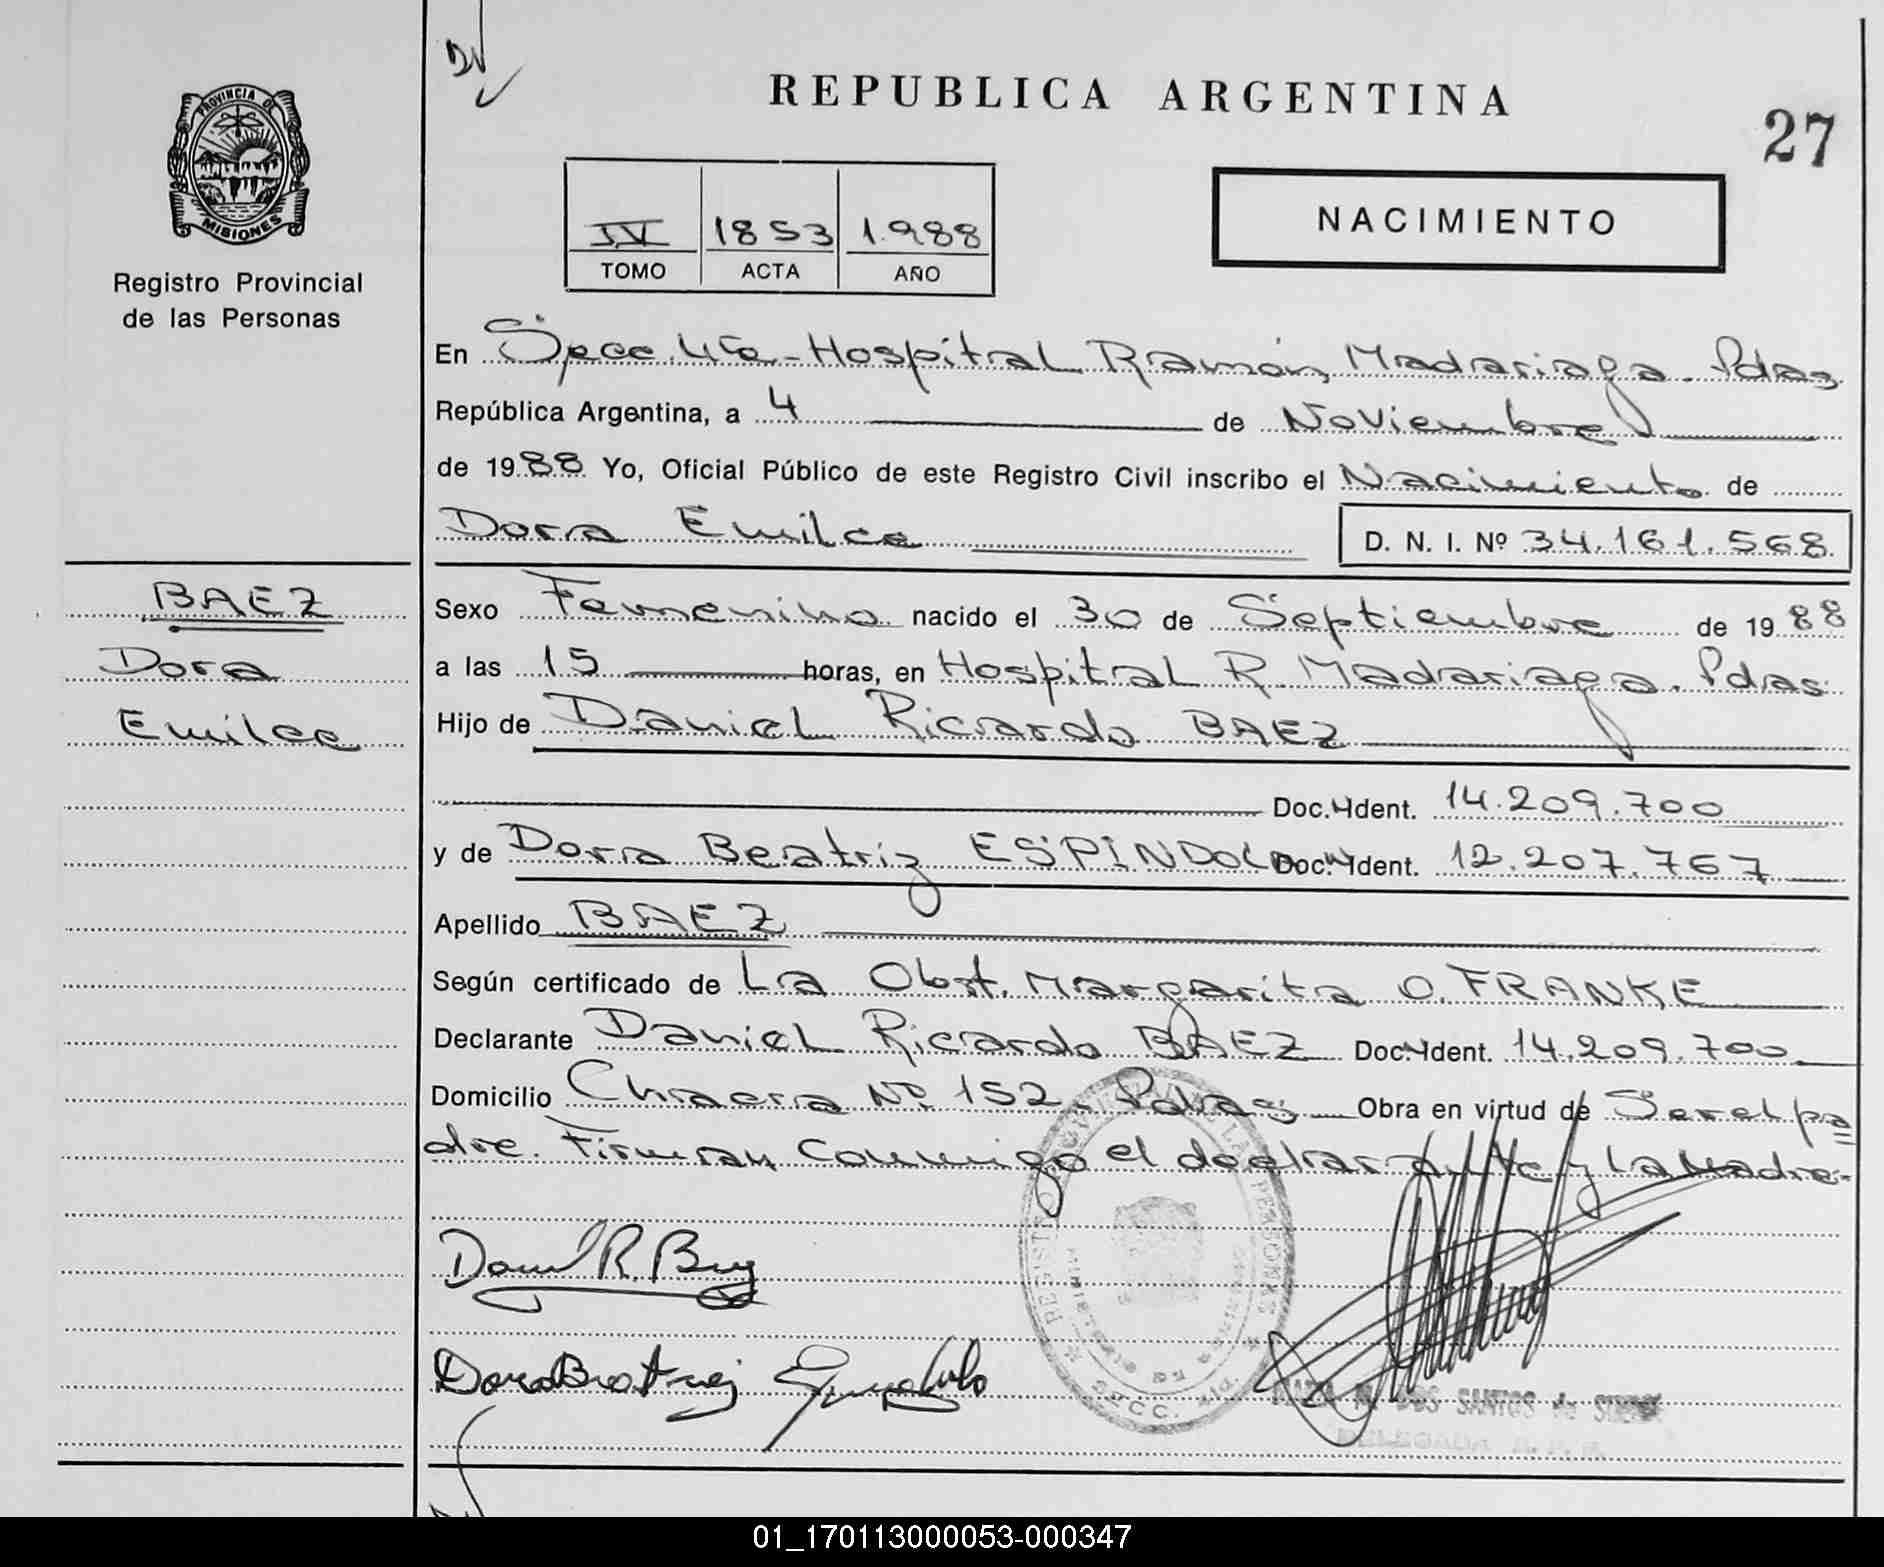 DV
REPUBLICA ARGENTINA
27
PROVINCIA DE
MISIONES
Registro Provincial
de las Personas
IV 1853 1.988
TOMO ACTA AÑO
NACIMIENTO
En Secc. 4ta - Hospital Ramón Madariaga. Pdas
República Argentina, a 4 de Noviembre
de 1988 Yo, Oficial Público de este Registro Civil inscribo el Nacimiento de
Dora Emilce D. N. I. Nº 34.161.568.
BAEZ
Dora
Emilce
Sexo Femenino nacido el 30 de Septiembre de 1988
a las 15 horas, en Hospital R. Madariaga. Pdas
Hijo de Daniel Ricardo BAEZ
Doc. Ident. 14.209.700
y de Dora Beatriz ESPINDOLA Doc. Ident. 12.207.767
Apellido BAEZ
Según certificado de La Obst. Margarita O. FRANKE
Declarante Daniel Ricardo BAEZ Doc. Ident. 14.209.700
Domicilio Chacra Nº 152. Pdas Obra en virtud de Ser el pa
dre. Firman Conmigo el declarante y La Madre-
Daniel R. Baez
Dora Beatriz
DOS SANTOS de
DELEGADA
01_170113000053-000347